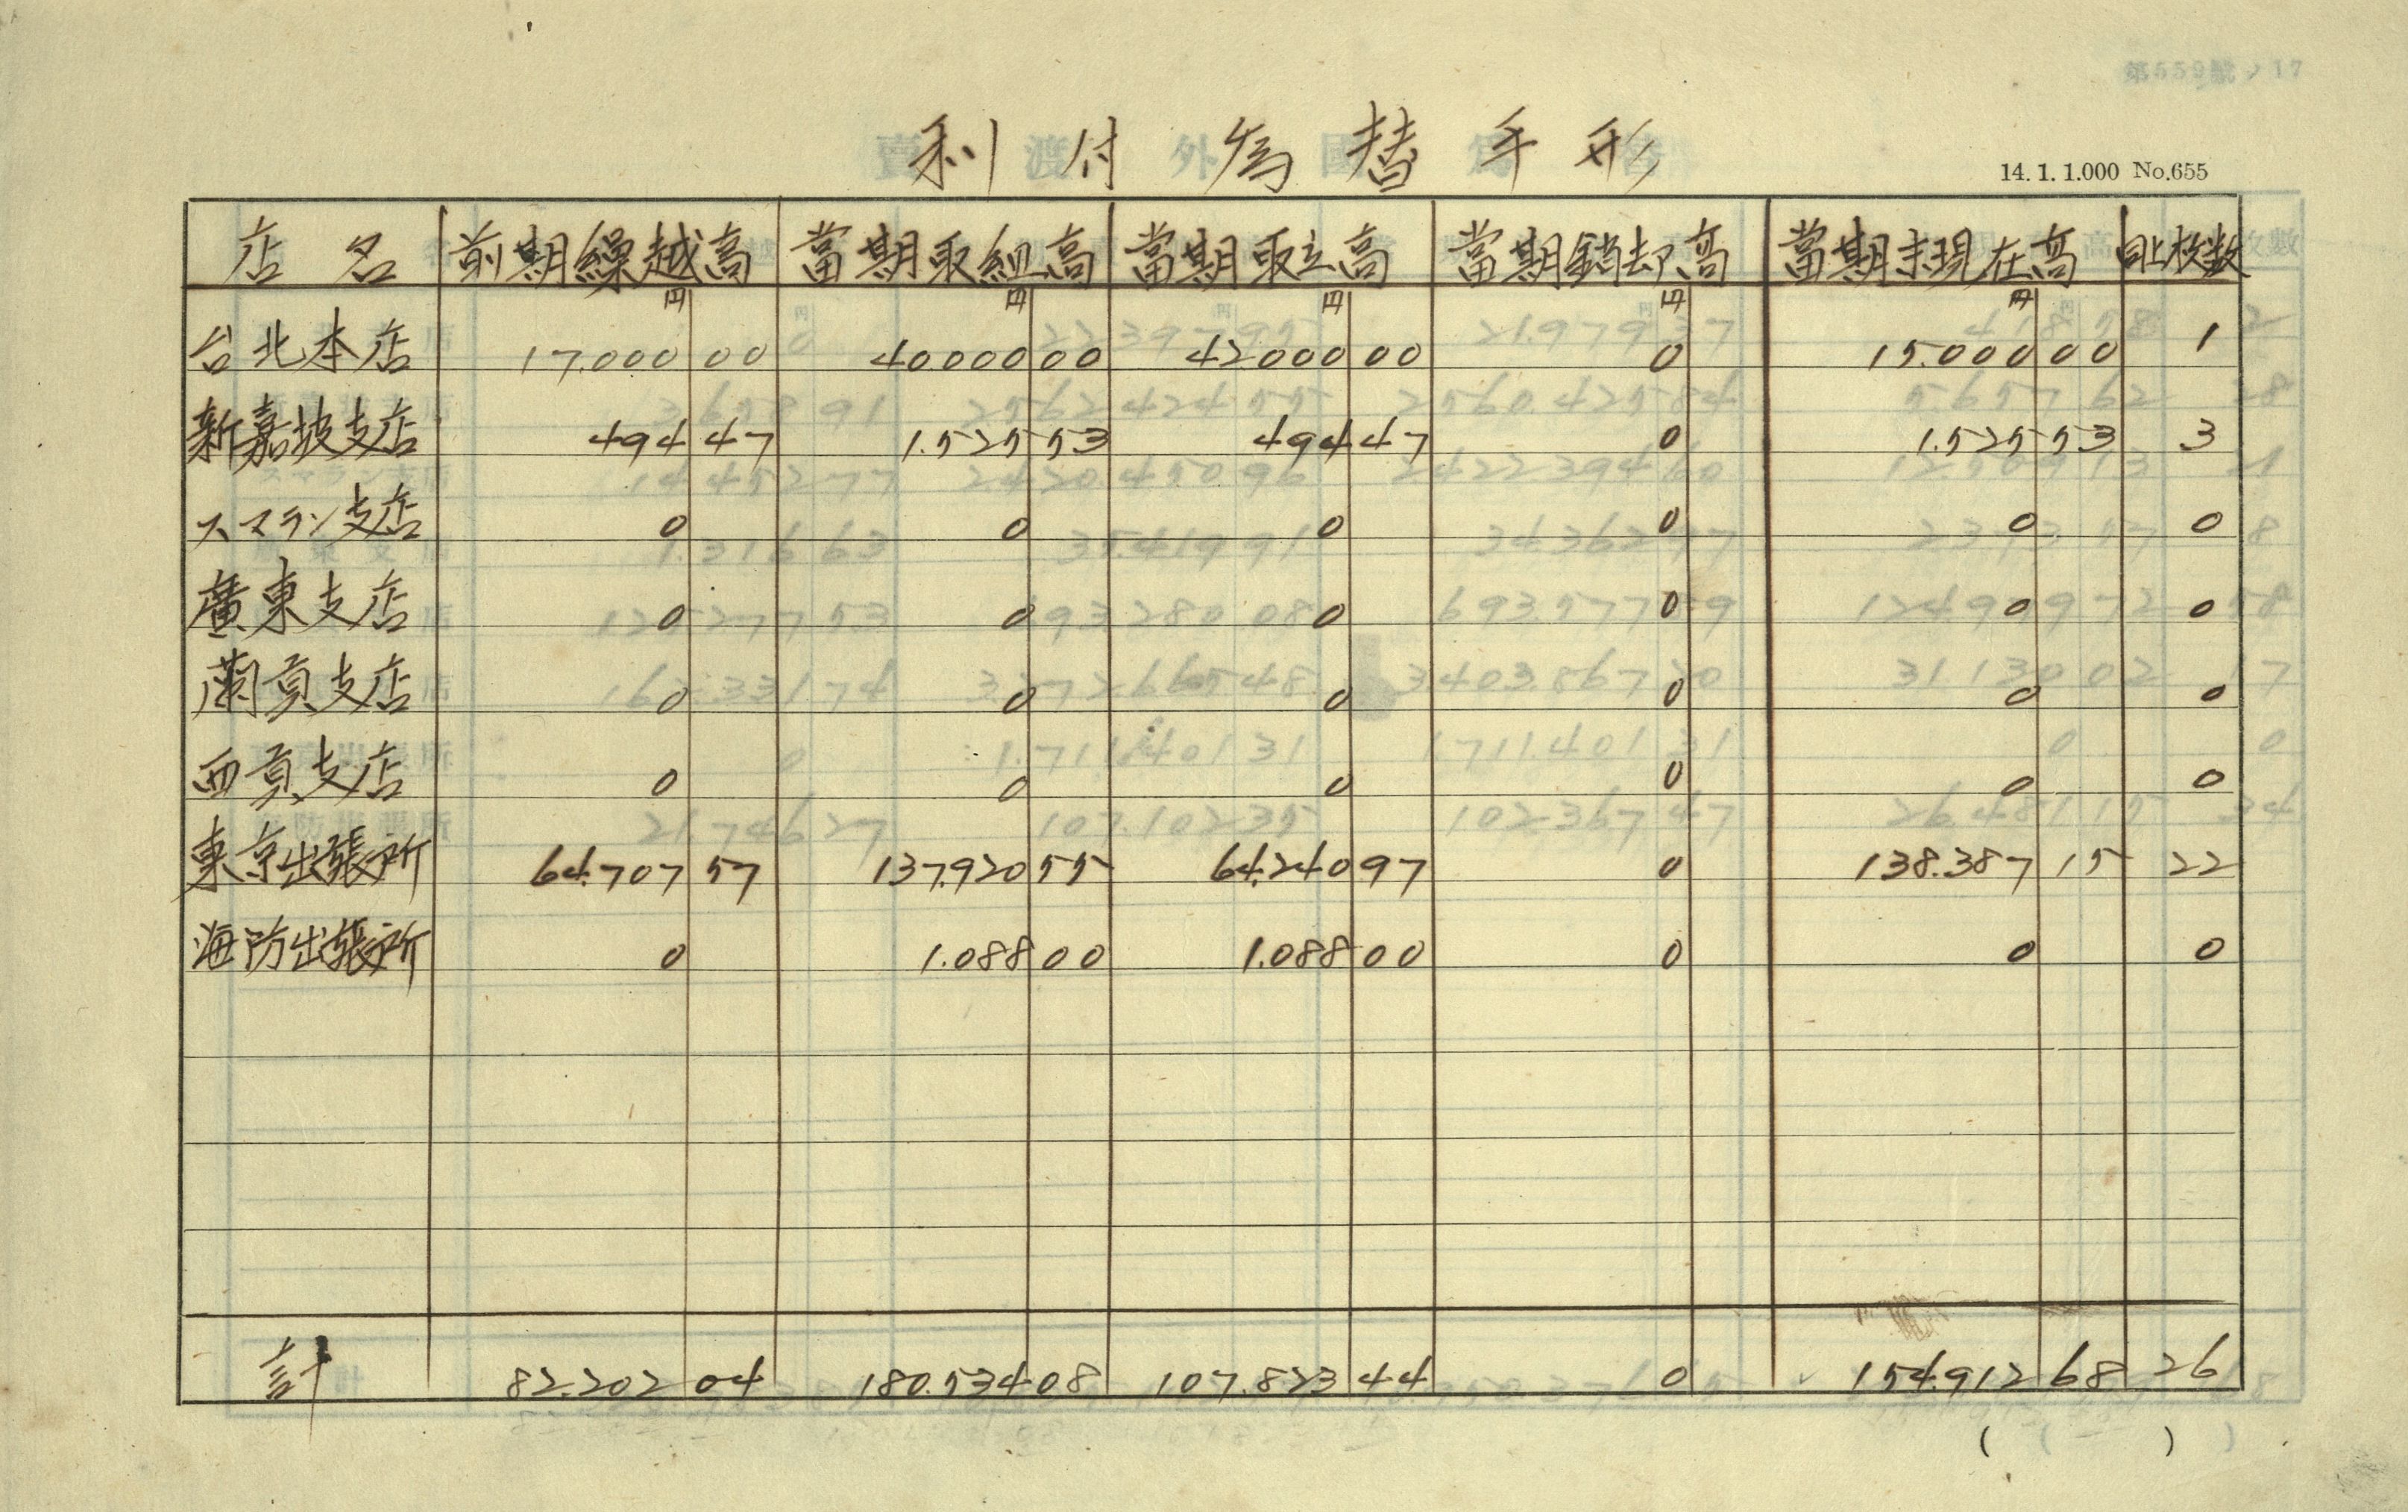 利付為替手形
14. 1. 1.000 No.655
店名 前期繰越高 當期取組高 當期取立高 當期銷却高 當期末現在高 同上枚数
円 円 円 円 円
台北本店 17.000 00 40000 00 42000 00 0 15.000 00 1
新嘉坡支店 494 47 1.525 53 494 47 0 1.525 53 3
スマラン支店 0 0 0 0 0 0
廣東支店 0 0 0 0 0 0
蘭貢支店 0 0 0 0 0 0
西貢支店 0 0 0 0 0 0
東京出張所 64.707 57 137.920 55 64.240 97 0 138.387 15 22
海防出張所 0 1.088 00 1.088 00 0 0 0
計 82.202 04 180.534 08 107.823 44 0 154.912 68 26
( )